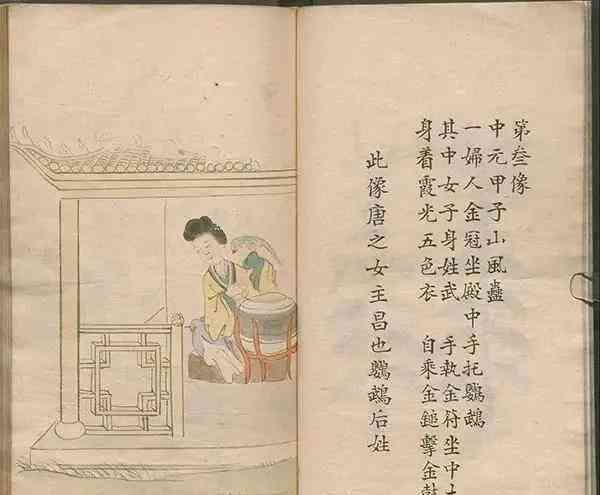 第叁像
中元甲子山風蠱
一婦人金冠坐殿中手托鸚鵡
其中女子身姓武　手執金符坐中
身着霞光五色衣　自乘金鎚擊金鼓
此像唐之女主昌也鸚鵡后姓